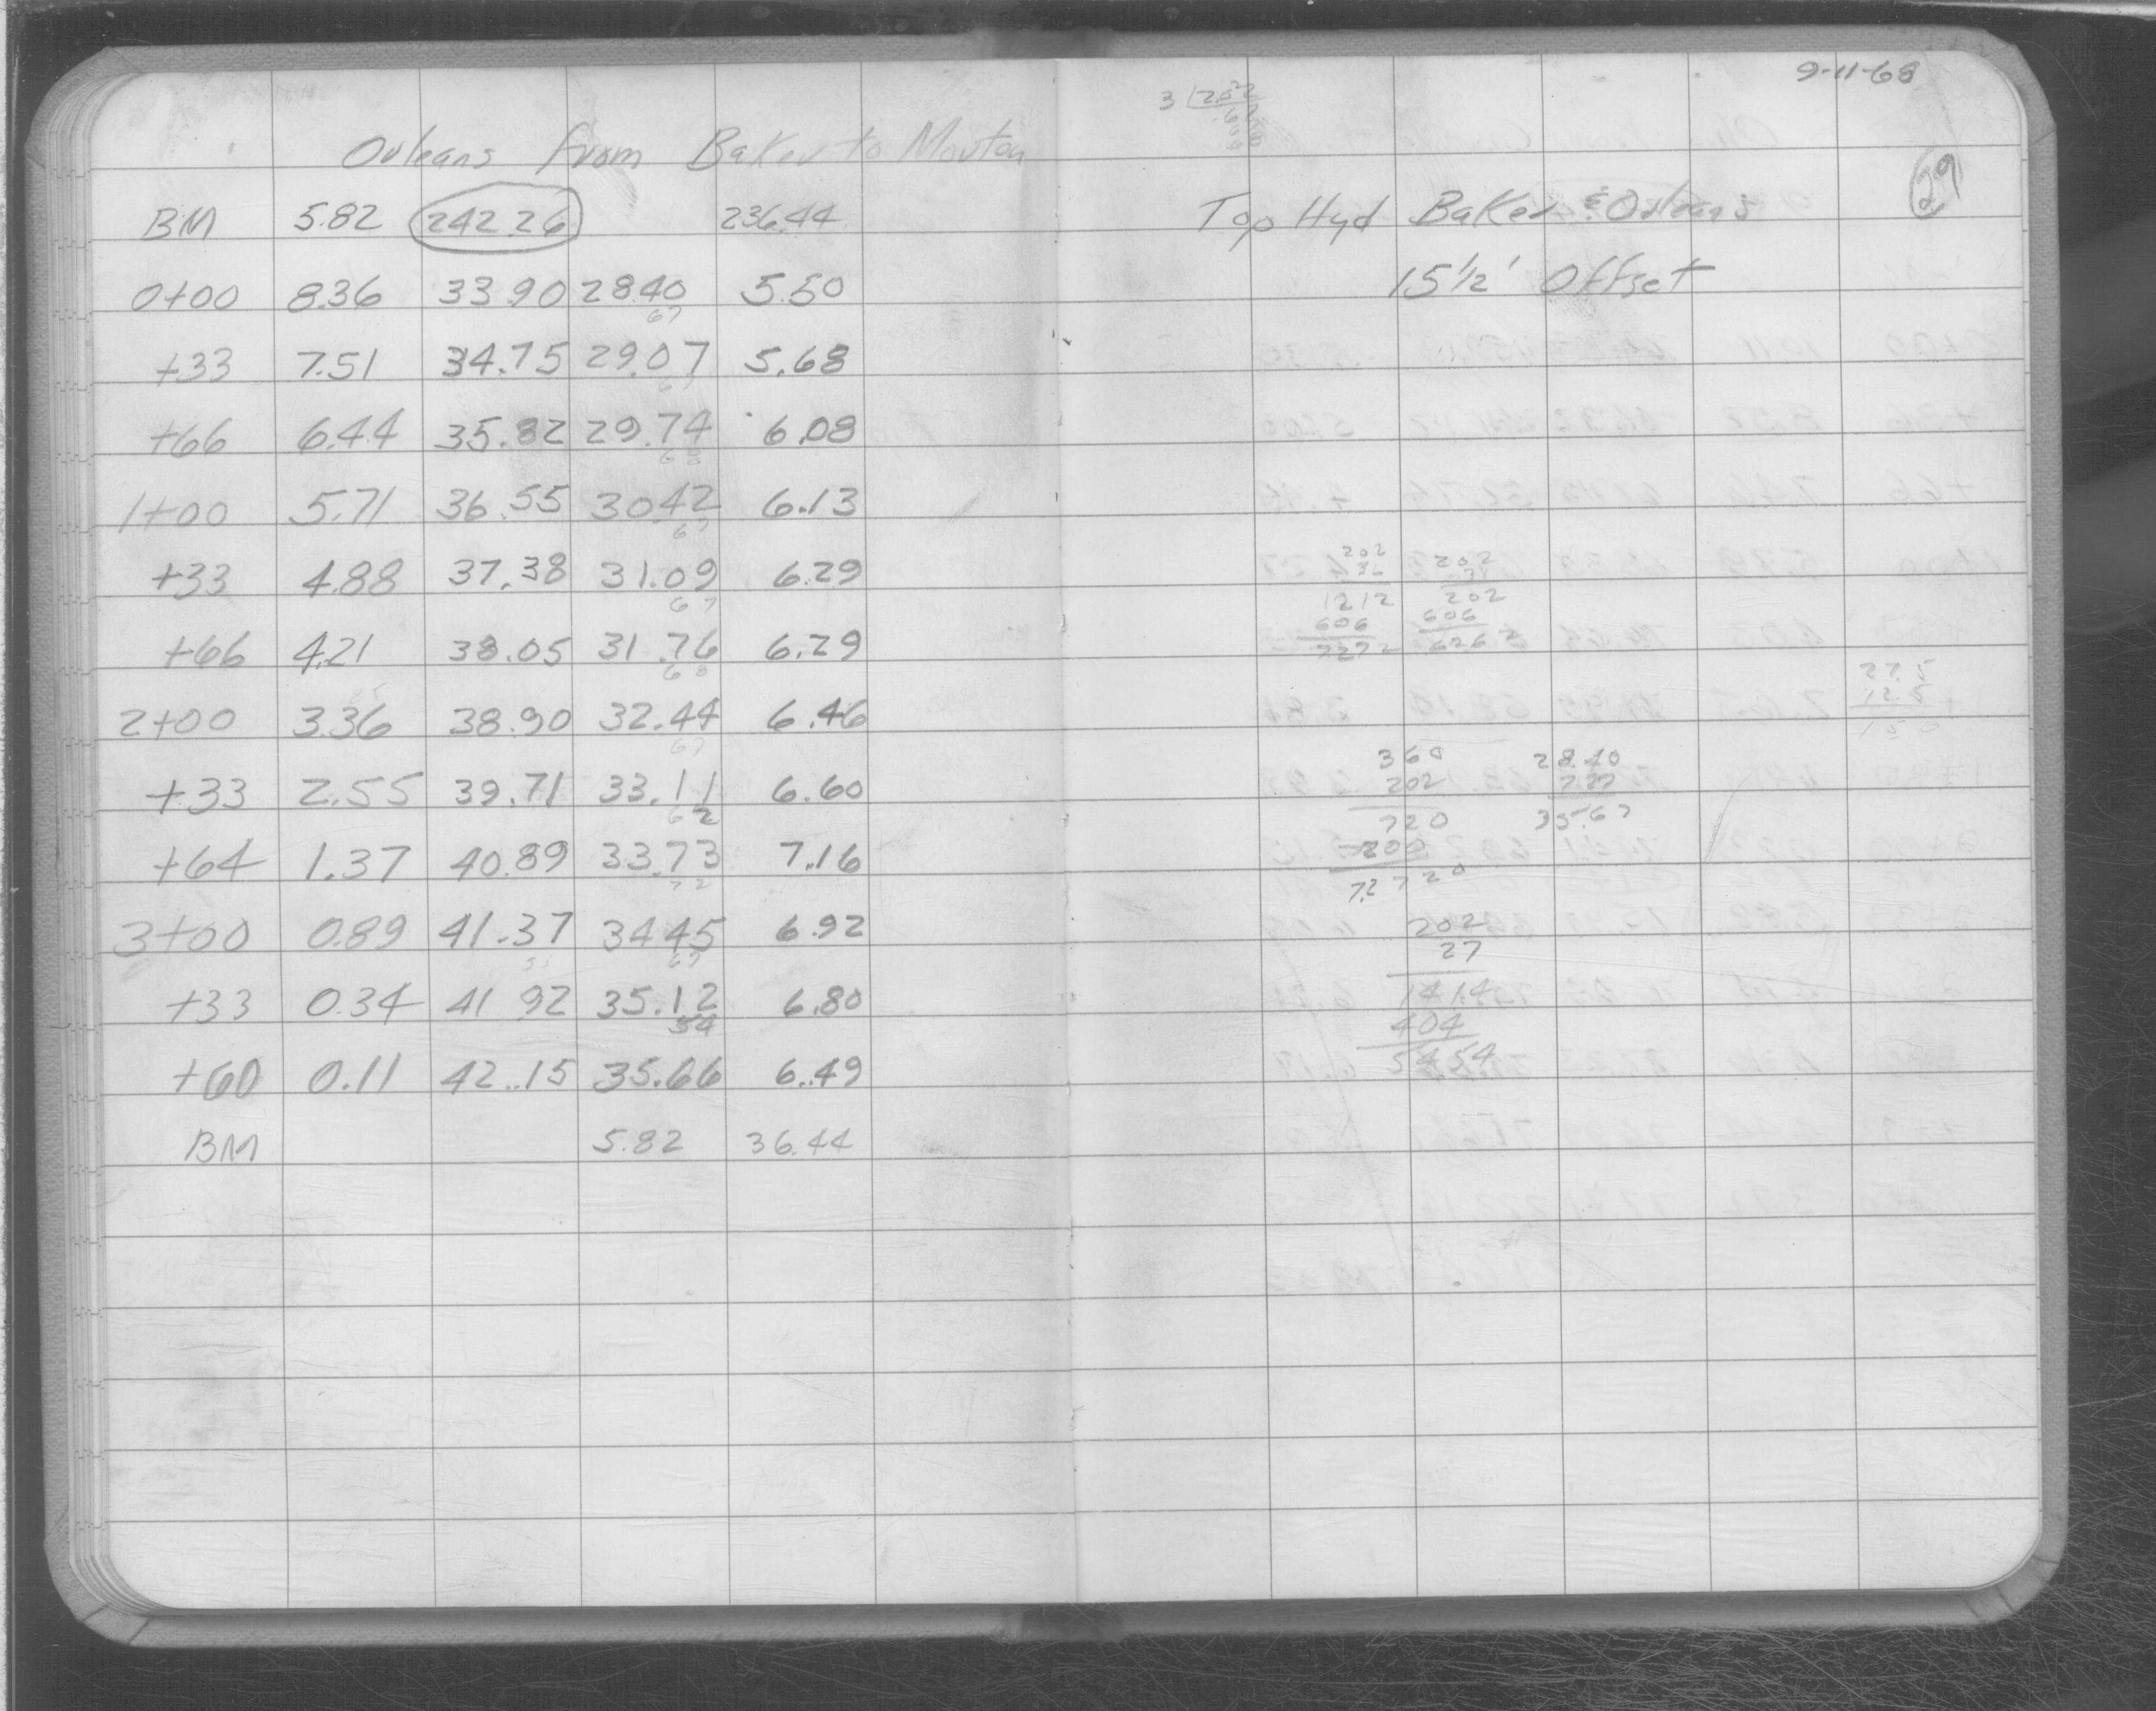 Orleans from Baker to Mouton
BM 5.82 242.26 236.44
0+00 8.36 33.90 28.40 5.50
67
+33 7.51 34.75 29.07 5.68
67
+66 6.44 35.82 29.74 6.08
68
1+00 5.71 36.55 30.42 6.13
67
+33 4.88 37.38 31.09 6.29
67
+66 4.21 38.05 31.76 6.29
68
2+00 3.36 38.90 32.44 6.46
67
+33 2.55 39.71 33.11 6.60
62
+64 1.37 40.89 33.73 7.16
72
3+00 0.89 41.37 34.45 6.92
55 67
+33 0.34 41.92 35.12 6.80
54
+60 0.11 42.15 35.66 6.49
BM 5.82 36.44
9-11-68
3 2.02
29
Top Hyd Baker & Orleans
15 1/2' Offset
202 202
36 31
1212 202
606 606
7272 6262
27.5
12.5
15 0
360 28.40
202 727
720 35.67
7200
72 720
202
27
1414
404
5454